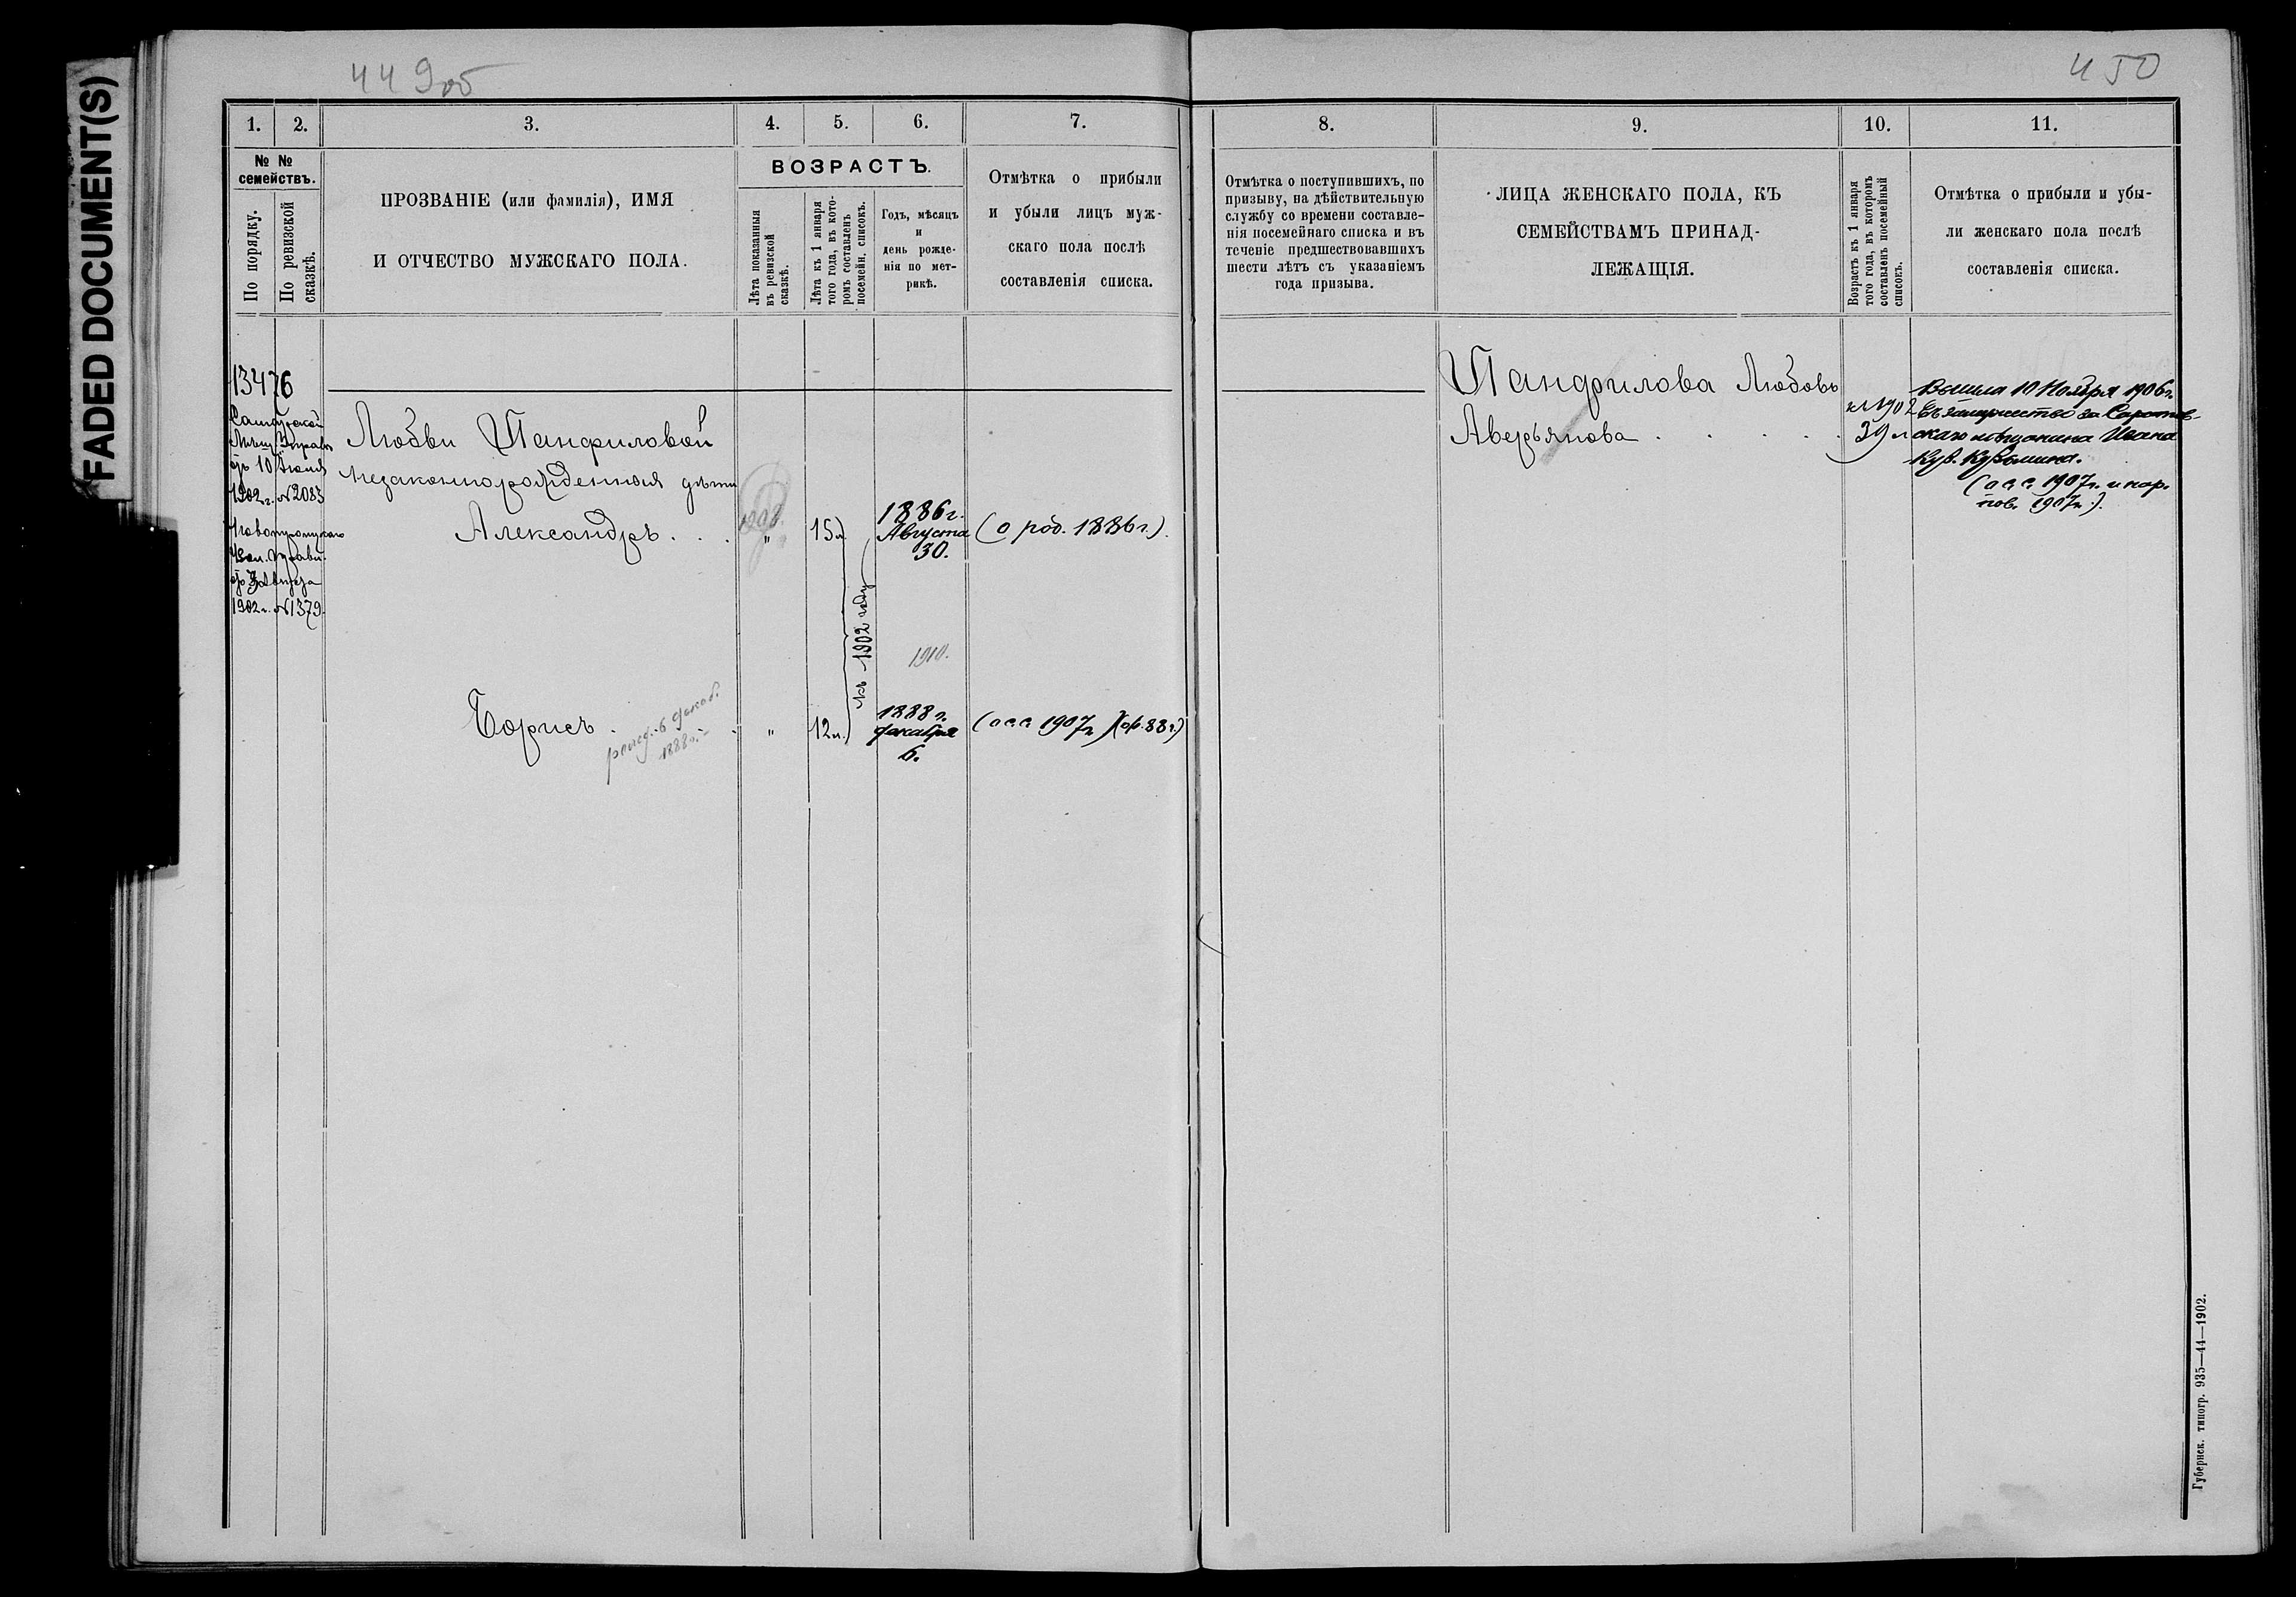 FADED DOCUMENT(S)
449об
450
1.
2.
3.
4.
5.
6.
7.
8.
9.
10.
11.
№ №
семействъ.
По порядку.
По ревизской
сказкѣ.
ПРОЗВАНІЕ (или фамилія), ИМЯ
И ОТЧЕСТВО МУЖСКАГО ПОЛА.
ВОЗРАСТЪ.
Лѣта показанныя
въ ревизской
сказкѣ.
Лѣта къ 1 января
того года, въ кото-
ромъ составленъ
посемейн. списокъ.
Годъ, мѣсяцъ
и
день рожде-
нія по мет-
рикѣ.
Отмѣтка о прибыли
и убыли лицъ муж-
скаго пола послѣ
составленія списка.
Отмѣтка о поступившихъ, по
призыву, на дѣйствительную
службу со времени составле-
нія посемейнаго списка и въ
теченіе предшествовавшихъ
шести лѣтъ съ указаніемъ
года призыва.
ЛИЦА ЖЕНСКАГО ПОЛА, КЪ
СЕМЕЙСТВАМЪ ПРИНАД-
ЛЕЖАЩІЯ.
Возрастъ къ 1 января
того года, въ которомъ
составленъ посемейный
списокъ.
Отмѣтка о прибыли и убы-
ли женскаго пола послѣ
составленія списка.
13476
Мѣщ. Управы
10 Іюня
1902 г. №2083
1902 г. №1379.
Любви Панфиловой
незаконнорожденныя дѣти
Александръ . . .
"
15 л.
1886 г.
Августа
30.
(о род. 1886 г.)
къ 1902 году
1910.
Борисъ .
рожд. 6 декаб.
1888 г.
"
12 л.
1888 г.
декабря
6.
(осс 1907 г.)(ор. 88 г.)
Панфилова Любовь
Аверьянова . . . . .
къ 1902
39 л
Вышла 10 Ноября 1906 г.
въ замужество за Саратов-
скаго мѣщанина Ивана
Куз. Кузьмина.
(осс 1907 г. и пор.
1907 г.).
Губернск. типогр. 935—44—1902.